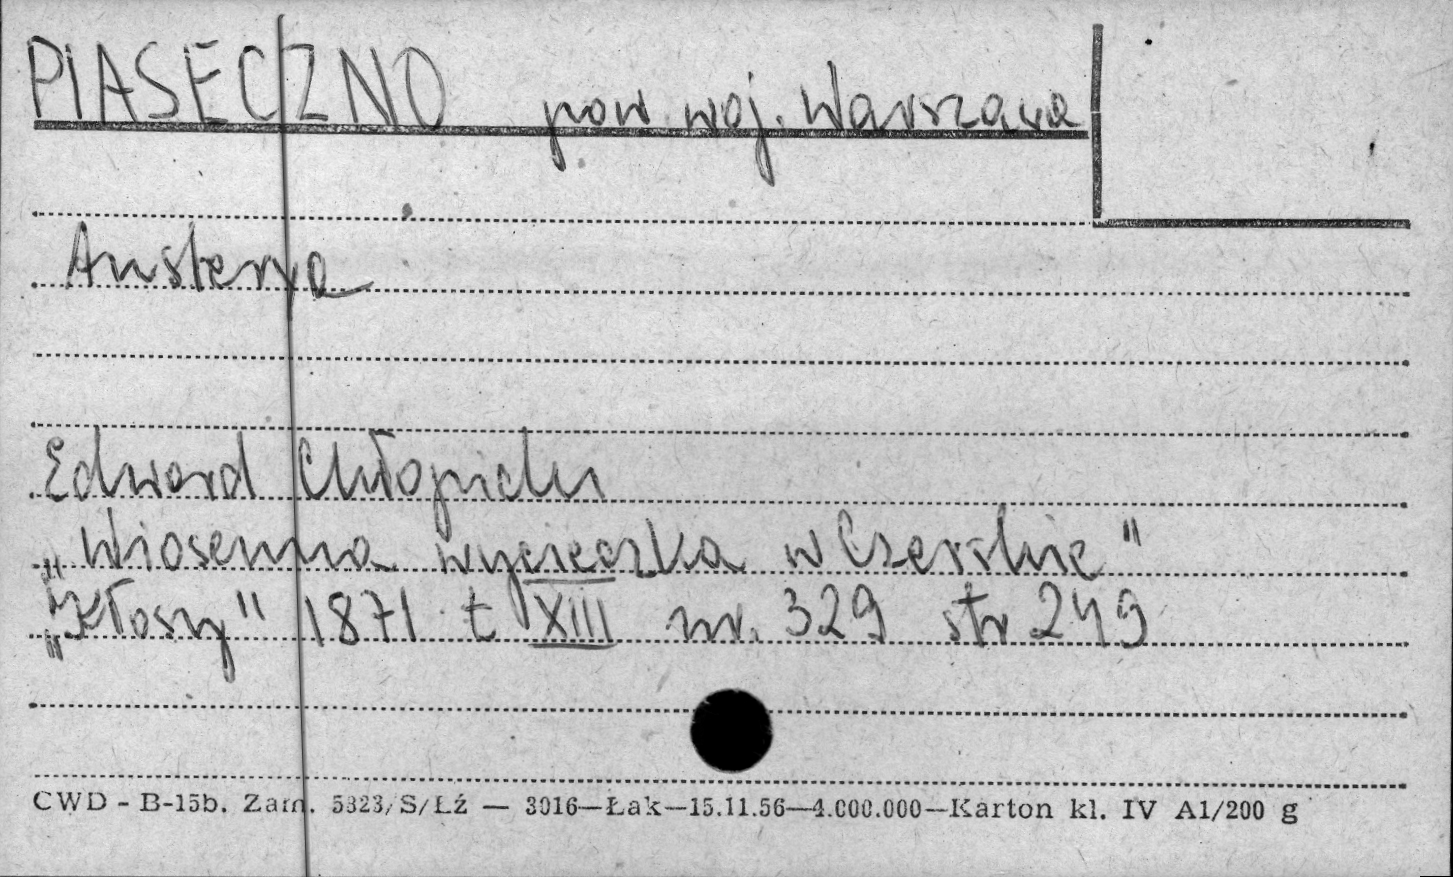 PIASECZNO pow. woj. Warszawa
Austerya
Edward Chłopicki
„Wiosenna wycieczka w Czerskie"
„Kłosy" 1871 t XIII nr. 329 str 249
CWD - B-15b. Zam. 5823/S/Łź — 3016—Łak—15.11.56—4.000.000—Karton kl. IV A1/200 g